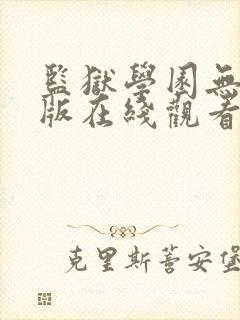 監獄學園無
版在綫觀看
克里斯蒂安堡